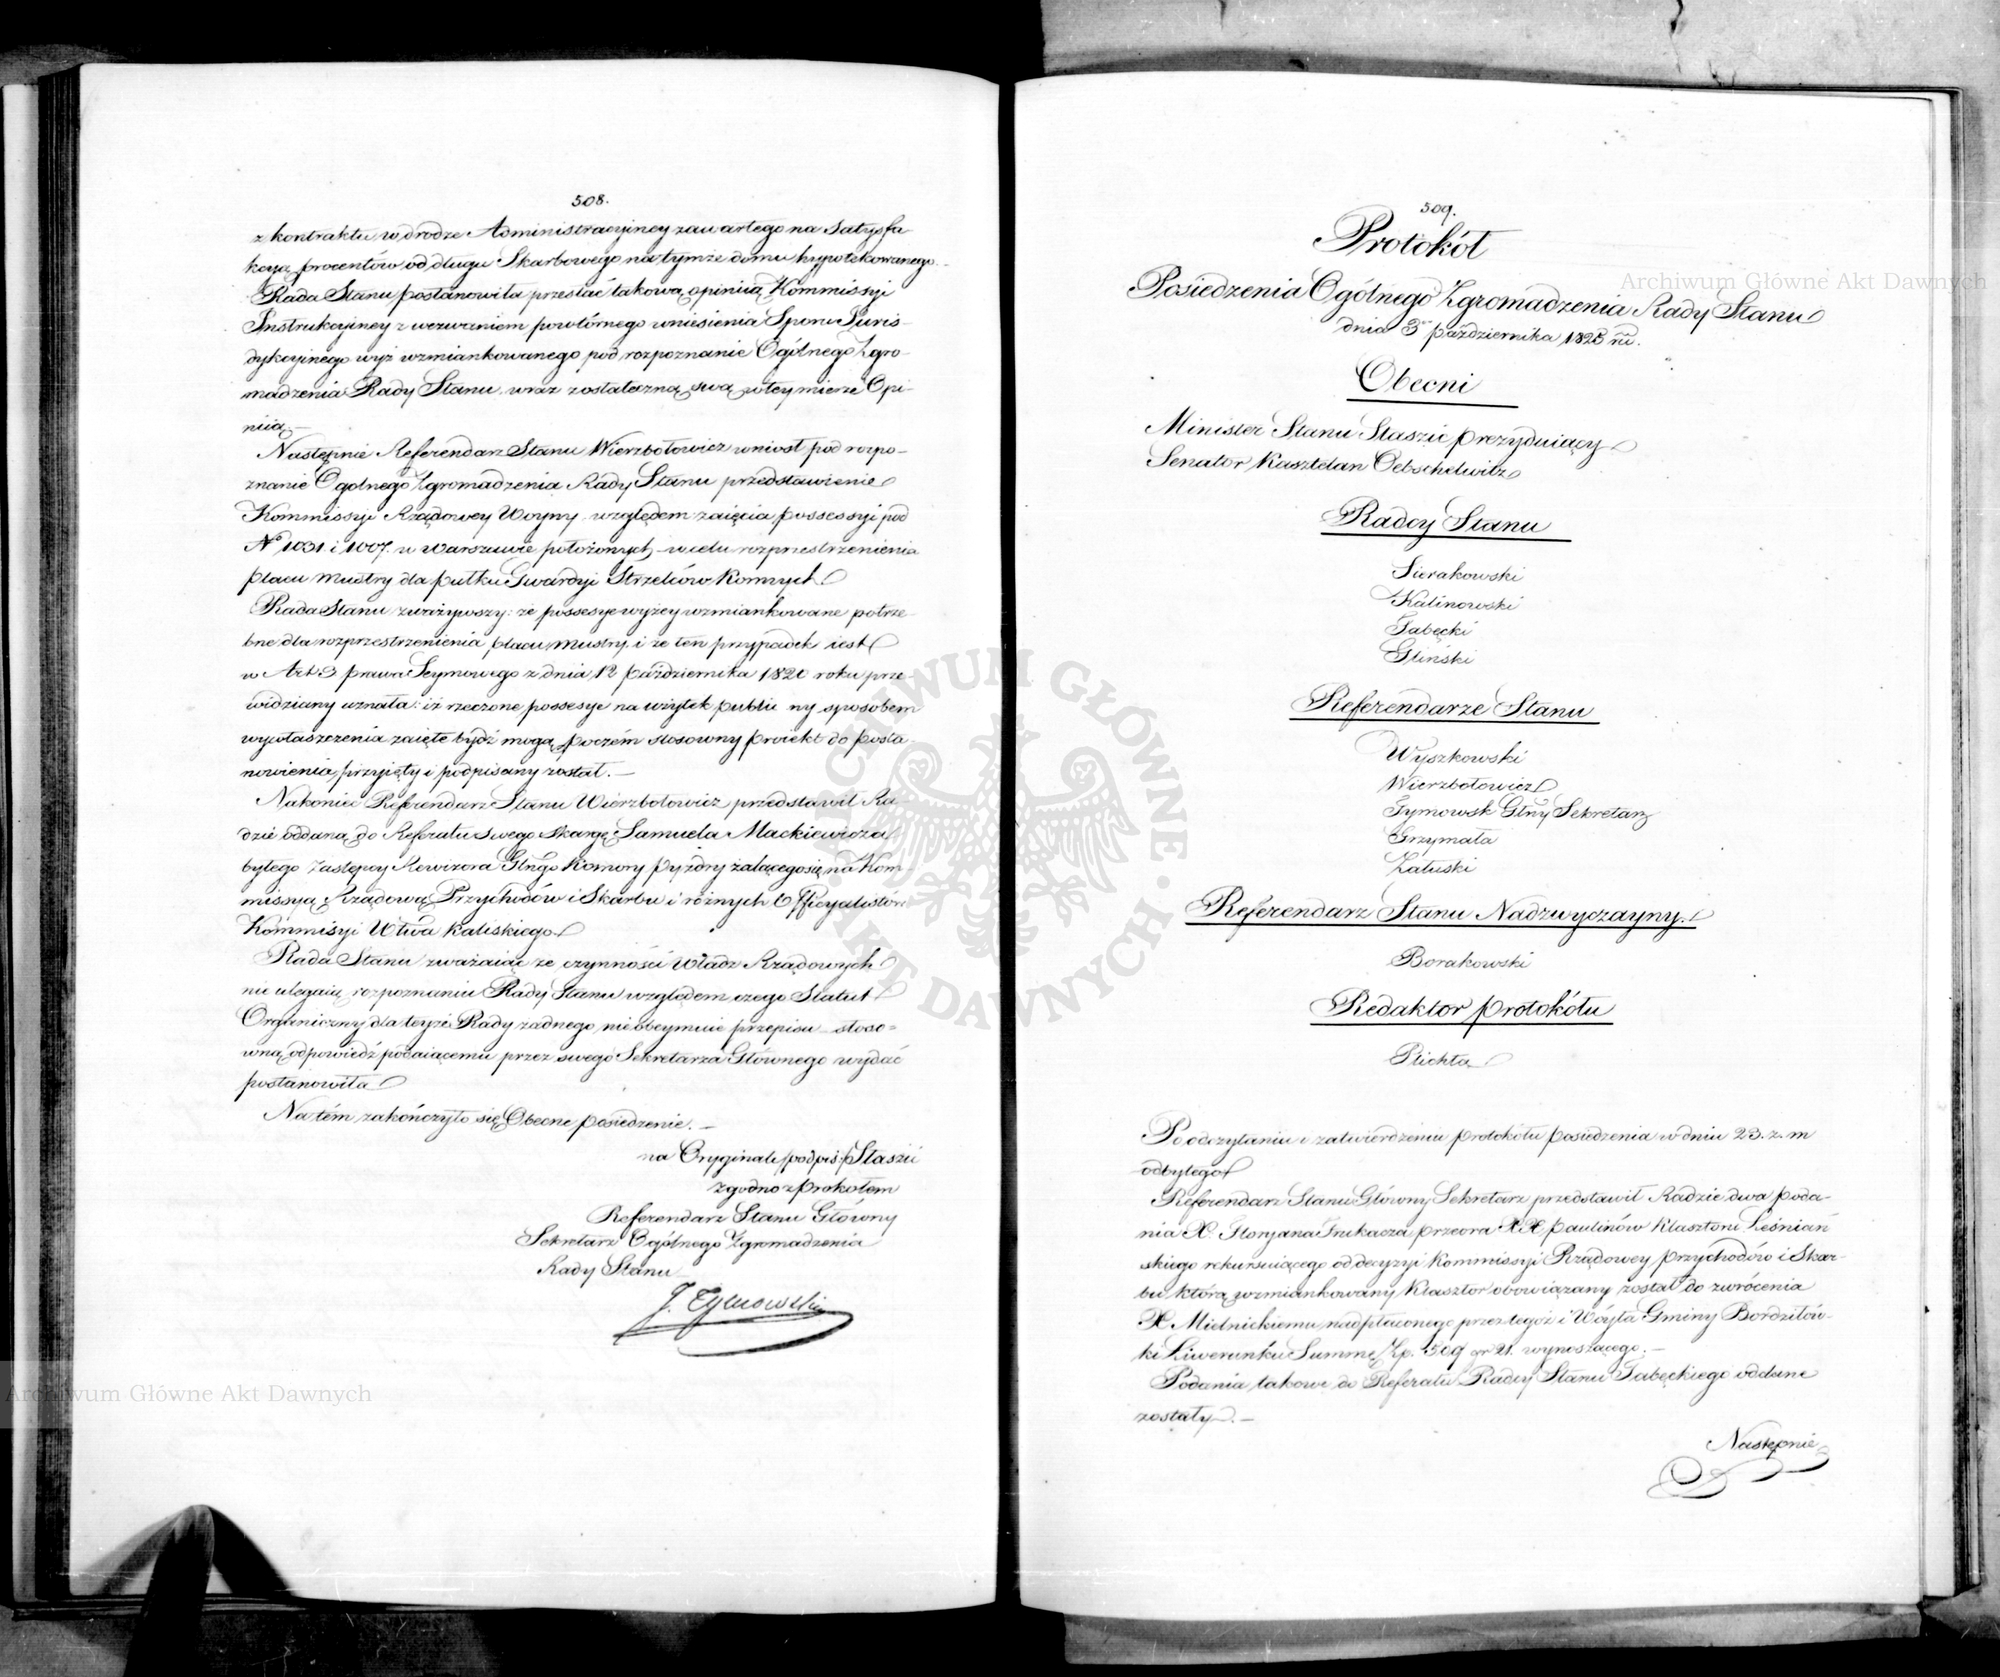 508.
z kontraktu w drodze Administracyiney zawartego na Satysfa-
kcyą procentów od długu Skarbowego na tymże domu hypotekowanego.
Rada Stanu postanowiła przesłać takową opiniią Kommissyi
Instrukcyiney z wezwaniem powtórnego wniesienia Sporu Juris-
dykcyinego wyż wzmiankowanego pod rozpoznanie Ogólnego Zgro-
madzenia Rady Stanu wraz z ostateczną swą w tey mierze Opi-
niią.—
Następnie Referendarz Stanu Wierzbołowicz wniosł pod rozpo-
znanie Ogolnego Zgromadzenia Rady Stanu przedstawienie
Kommissyi Rządowey Woyny względem zaięcia possessyi pod
No 1031. i 1007. w Warszawie położonych w celu rozprzestrzenienia
placu mustry dla pułku Gwardyi Strzelców Konnych
Rada Stanu zważywszy: że possesye wyżey wzmiankowane potrze-
bne dla rozprzestrzenienia placu mustry i że ten przypadek iest
w Art 3 prawa Seymowego z dnia 12 października 1820 roku prze-
widziany uznała: iż rzeczone possesye na użytek publiczny sposobem
wywłaszczenia zaięte bydź mogą poczém stosowny proiekt do posta-
nowienia przyięty i podpisany został.—
Nakoniec Referendarz Stanu Wierzbołowicz przedstawił Ra-
dzie oddaną do Referatu swego skargę Samuela Mackiewicza
byłego zastępcy Rewizora Głngo Komory Pyzdry żalącego się na Kom-
missyą Rządową Przychodów i Skarbu i różnych Officyalistów
Kommisyi Wtwa Kaliskiego
Rada Stanu zważaiąc że czynności Władz Rządowych
nie ulegaią rozpoznaniu Rady Stanu względem czego Statut
Organiczny dla teyże Rady żadnego nie obeymuie przepisu stoso-
wną odpowiedź podaiącemu przez swego Sekretarza Głównego wydać
postanowiła
Na tém zakończyło się Obecne posiedzenie.—
na Oryginale podpis: Staszic
zgodno z prokołem
Referendarz Stanu Główny
Sekretarz Ogólnego Zgromadzenia
Rady Stanu
J. Tymowski
509.
Protokół
Posiedzenia Ogólnego Zgromadzenia Rady Stanu
dnia 3o października 1825 ru.
Obecni
Minister Stanu Staszic prezyduiący
Senator Kasztelan Oebschelwitz
Radcy Stanu
Sierakowski
Kalinowski
Tabęcki
Gliński
Referendarze Stanu
Wyszkowski
Wierzbołowicz
Tymowsk Głny Sekretarz
Grzymała
Załuski
Referendarz Stanu Nadzwyczayny.
Borakowski
Redaktor protokółu
Plichta
Po odczytaniu i zatwierdzeniu protokółu posiedzenia w dniu 23. z. m
odbytego
Referendarz Stanu Główny Sekretarz przedstawił Radzie dwa poda-
nia X. Floryana przeora XX paulinów Klasztoru Leśniań-
skiego rekursuiącego od decyzyi Kommissyi Rządowey przychodów i Skar-
bu którą wzmiankowany Klasztor obowiązany został do zwrócenia
X Mielnickiemu nadpłaconego przez tegoż i Wóyta Gminy Bordziłów-
ki Liwerunku Summę Zp. 509 gr 21. wynoszącego.—
Podania takowe do Referatu Radcy Stanu Tabęckiego oddane
zostały.—
Następnie
Archiwum Główne Akt Dawnych
Archiwum Główne Akt Dawnych
ARCHIWUM GŁÓWNE AKT DAWNYCH